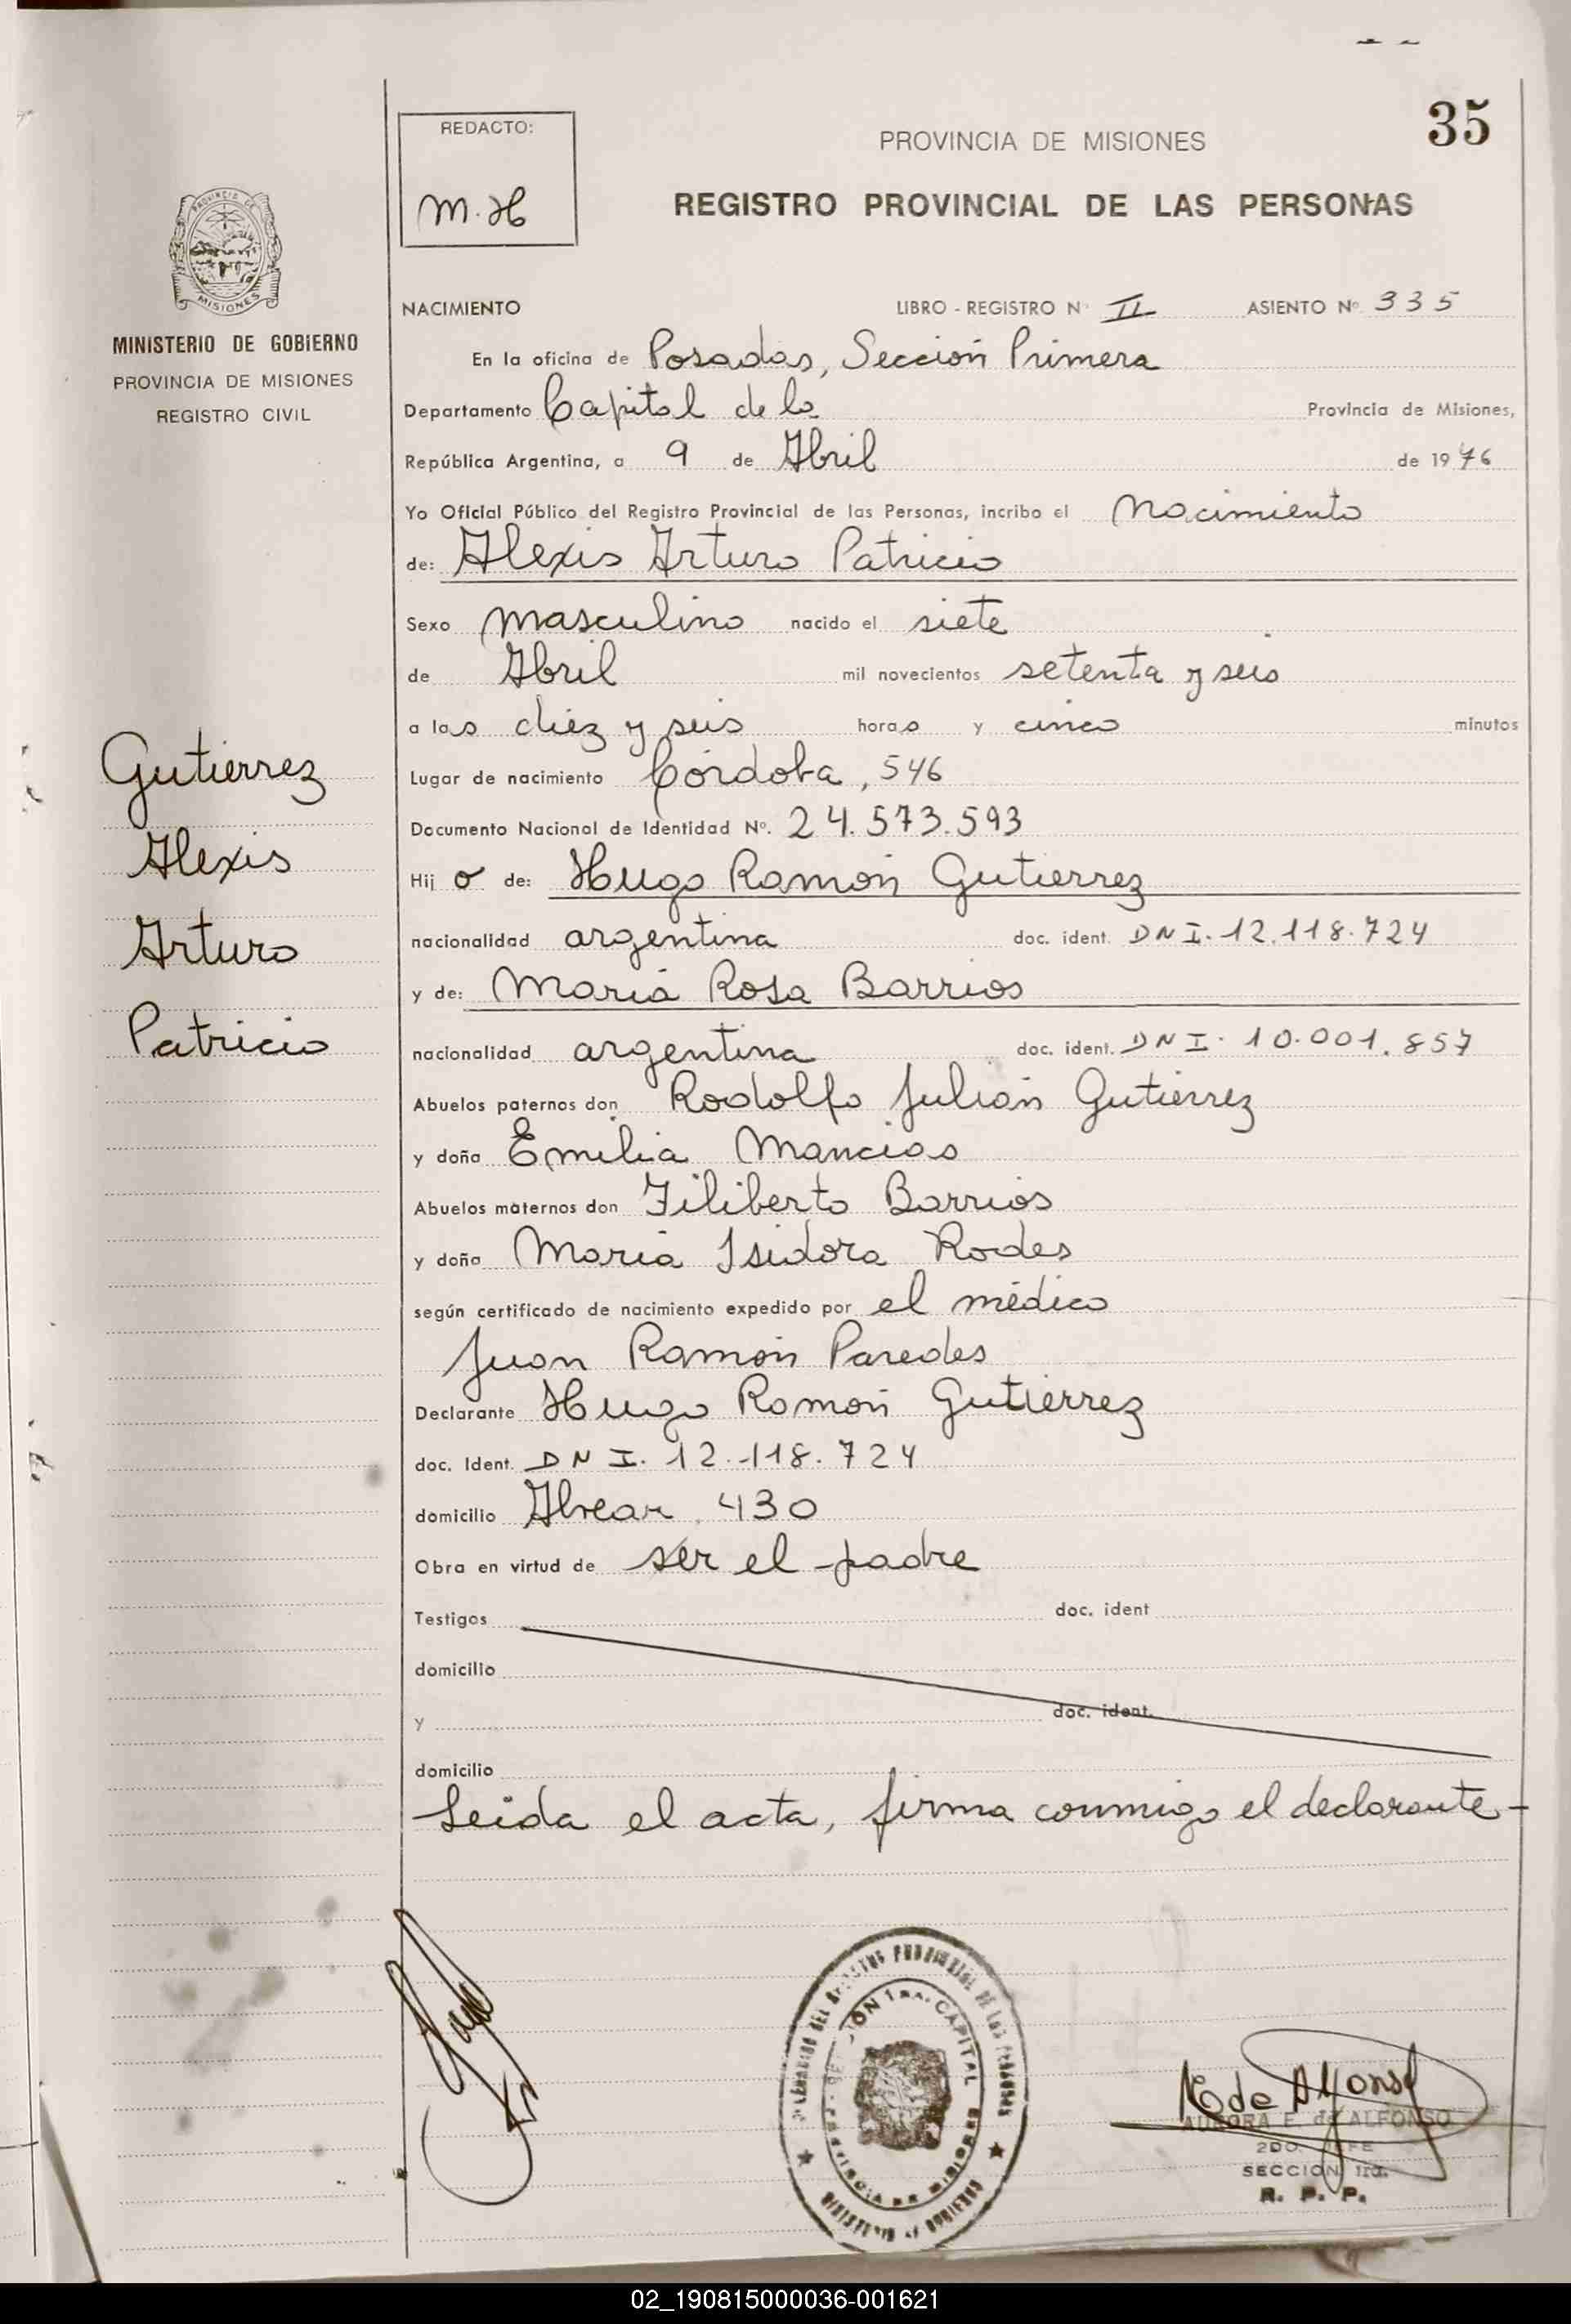 35
REDACTO:
M.H
PROVINCIA DE MISIONES
REGISTRO PROVINCIAL DE LAS PERSONAS
PROVINCIA DE
MISIONES
MINISTERIO DE GOBIERNO
PROVINCIA DE MISIONES
REGISTRO CIVIL
Gutierrez
Alexis
Arturo
Patricio
NACIMIENTO LIBRO - REGISTRO Nº II ASIENTO Nº 335
En la oficina de Posadas, Sección Primera
Departamento Capital de la Provincia de Misiones,
República Argentina, a 9 de Abril de 1976
Yo Oficial Público del Registro Provincial de las Personas, incribo el Nacimiento
de: Alexis Arturo Patricio
Sexo masculino nacido el siete
de Abril mil novecientos setenta y seis
a las diez y seis horas y cinco minutos
Lugar de nacimiento Córdoba, 546
Documento Nacional de Identidad Nº. 24.573.593
Hijo de: Hugo Ramón Gutierrez
nacionalidad argentina doc. ident. DNI. 12.118.724
y de: María Rosa Barrios
nacionalidad argentina doc. ident. DNI. 10.001.857
Abuelos paternos don Rodolfo Julián Gutiérrez
y doña Emilia Mancias
Abuelos maternos don Filiberto Barrios
y doña María Isidora Rodes
según certificado de nacimiento expedido por el médico
Juan Ramón Paredes
Declarante Hugo Ramón Gutiérrez
doc. Ident. DNI. 12.118.724
domicilio Alvear, 430
Obra en virtud de ser el padre
Testigos doc. ident
domicilio
y doc. ident.
domicilio
Leída el acta, firma conmigo el declarante-
SECCION 1ra. CAPITAL
PROVINCIA DE MISIONES
E de Alfonso
AURORA E. de ALFONSO
2DO. JEFE
SECCION 1ra.
R. P. P.
02_190815000036-001621